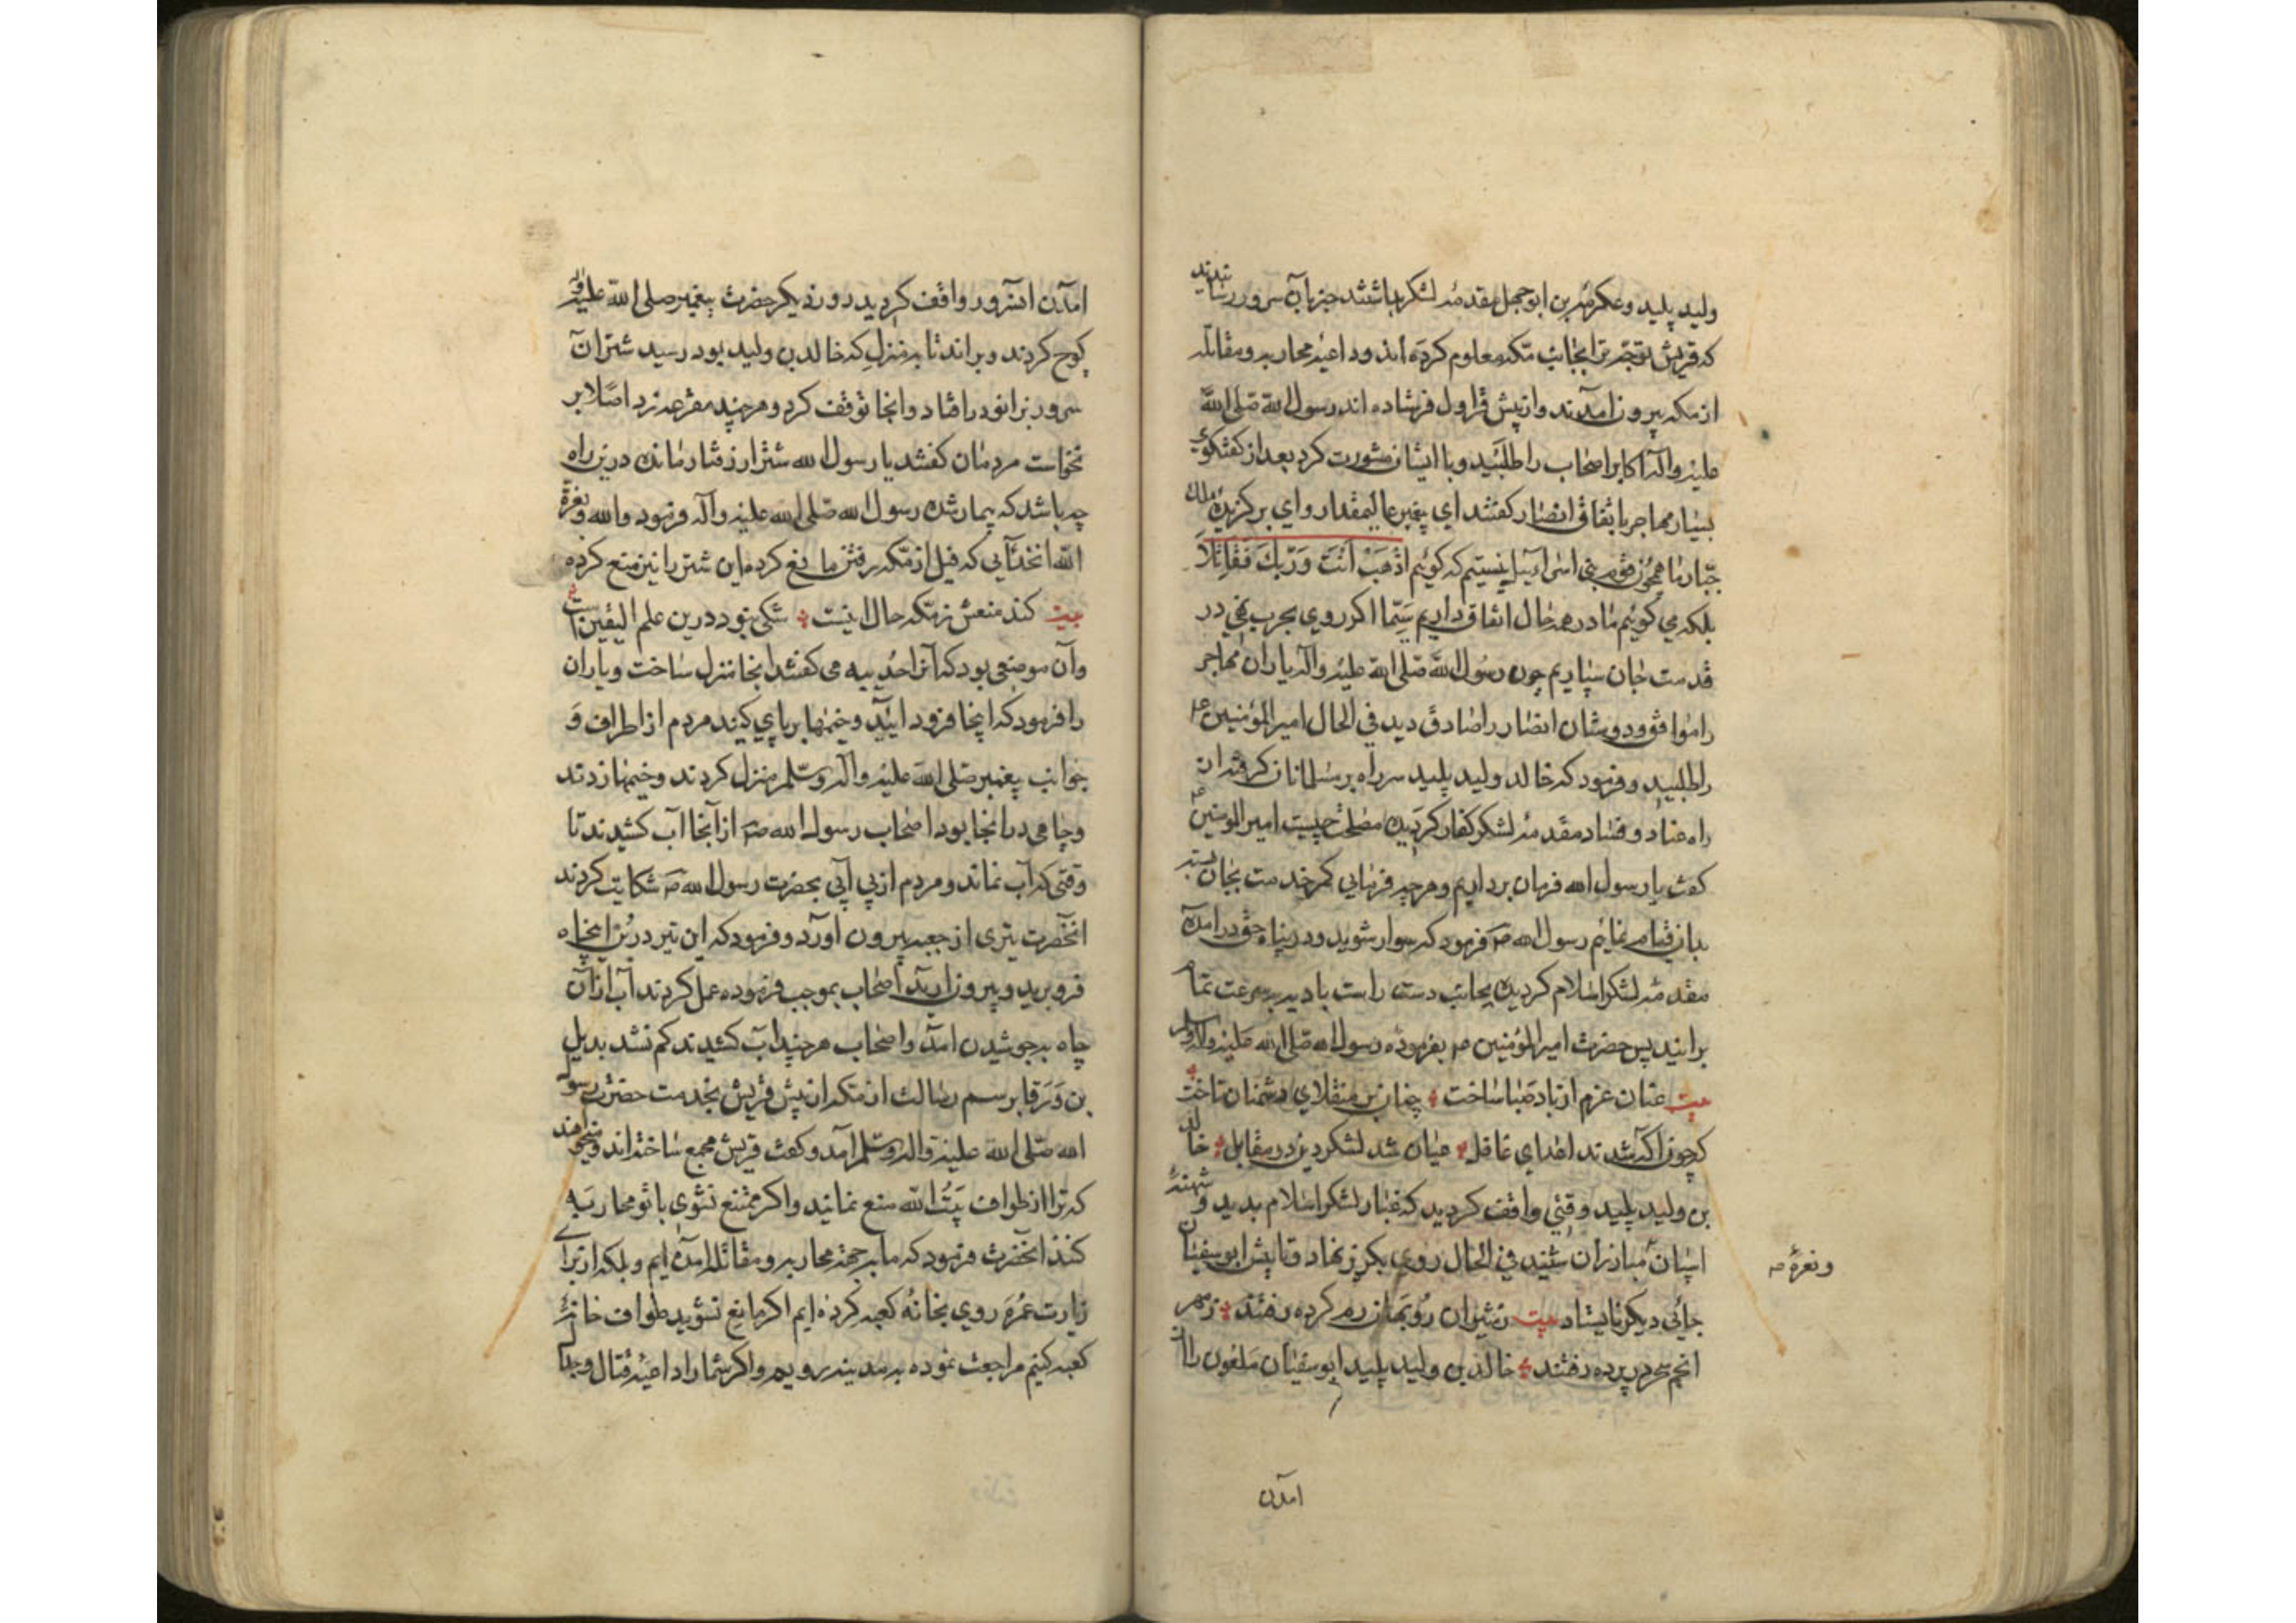 ولید پلید و عکرمه بن ابوجهل مقدمه لشکر باشند خبر بآن سرور رسانیدند
که قریش توجه ترا بجانب مکه معلوم کرده اند و داعیه محاربه و مقاتله
از مکه بیرون آمدند و از پیش قراول فرستاده اند رسول الله صلی الله
علیه و آله اکابر اصحاب را طلبید و با ایشان مشورت کرد بعد از گفتگوی
بسیار مهاجر باتفاق انصار گفتند ای پیغمبر عالیمقدار و ای برگزیده ملک
جبار ما همچون قوم بنی اسرائیل نیستیم که گوئیم اذْهَبْ اَنْتَ وَرَبُّكَ فَقَاتِلَا
بلکه می گوئیم ما در همه حال اتفاق داریم سیّما اگر روی بحرب نهی در
قدمت جان سپاریم چون رسول الله صلی الله علیه و آله یاران مهاجر
را موافق و دوستان انصار را صادق دید فی الحال امیرالمؤمنین ع م
را طلبید و فرمود که خالد ولید پلید سر راه بر مسلمانان گرفته از
راه عناد و فساد مقدمه لشکر کفار گردیده مصلحت چیست امیرالمومنین ع م
گفت یا رسول الله فرمان برداریم و هرچه فرمایی کمر خدمت بجان بسته
بدان قیام نمایم رسول الله ص فرمود که سوار شوید و در پناه حق درآمده
مقدمه لشکر اسلام گردیده بجانب دست راست بادیه بسرعت تمام
برانید پس حضرت امیرالمؤمنین ع م بفرموده رسول الله صلی الله علیه و آله وسلم
بیت عنان عزم از باد صبا ساخت چنان بر منقلای دشمنان تاخت
که چون آگه شدند اعدای غافل عیان شد لشکر دین در مقابل خالد
بن ولید پلید وقتی واقف گردید که غبار لشکر اسلام بدید و شیهه
اسپان مبارزان شنید فی الحال روی بگریز نهاد و تا پیش ابوسفیان
و نعره ص
جائی دیگر نایستاد بیت ز شیران روبهان رم کرده رفتند ز مهر
انجم همه در پرده رفتند خالد بن ولید پلید ابوسفیان ملعون را از
آمدن
آمدن آنسرور واقف گردید روز دیگر حضرت پیغمبر صلی الله علیه و آله
کوچ کردند و براند تا به منزلی که خالد بن ولید بود رسید شتر آن
سرور بزانو در افتاد و آنجا توقف کرد و هرچند مقرعه زد اصلا بر
نخواست مردمان گفتند یا رسول الله شتر از رفتار مانده درین راه
چه باشد که بیمار شده رسول الله صلی الله علیه و آله فرمود والله و بعزة
الله آنخدائی که فیل از مکه رفتن مانع کرده این شتر را نیز منع کرده
بیت کند منعش ز مکه حال اینست شکی نبود درین علم الیقین است
و آن موضعی بود که آنرا حدیبیه می گفتند آنجا منزل ساخت و یاران
را فرمود که اینجا فرود آیید و خیمها بر پای کنید مردم از اطراف و
جوانب پیغمبر صلی الله علیه و آله وسلم منزل کردند و خیمها زدند
و چاهی در آنجا بود اصحاب رسول الله ص از آنجا آب کشیدند تا
وقتی که آب نماند و مردم از بی آبی بحضرت رسول الله ص شکایت کردند
آنحضرت تیری از جعبه بیرون آورد و فرمود که این تیر در بن این چاه
فرو برید و بیرون آرید اصحاب بموجب فرموده عمل کردند آب از آن
چاه بجوشیدن آمد و اصحاب هرچند آب کشیدند کم نشد بدیل
بن وَرَقا برسم رسالت از مکه از پیش قریش بخدمت حضرت رسول
الله صلی الله علیه و آله وسلم آمد و گفت قریش مجمع ساخته اند و میخواهند
که ترا از طواف بیت الله منع نمایند و اگر ممتنع نشوی با تو محاربه
کنند آنحضرت فرمود که ما بجهة محاربه و مقاتله آمده ایم و بلکه از برای
زیارت عمره روی بخانه کعبه کرده ایم اگر مانع نشوید طواف خانه
کعبه کنیم مراجعت نموده به مدینه رویم و اگر شما را داعیه قتال و جدال